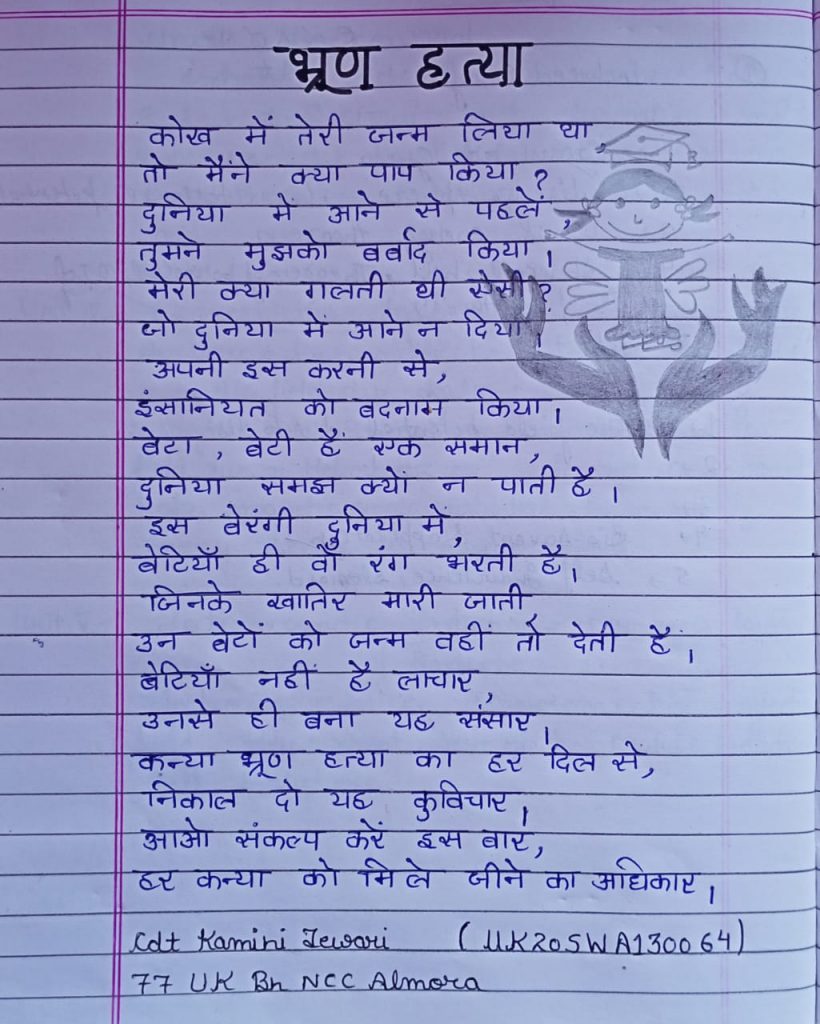 भ्रूण हत्या
कोख में तेरी जन्म लिया था,
तो मैंने क्या पाप किया?
दुनिया में आने से पहलें,
तुमने मुझको बर्बाद किया।
मेरी क्या गलती थी ऐसी?
जो दुनिया में आने न दिया।
अपनी इस करनी से,
इंसानियत को बदनाम किया।
बेटा, बेटी हैं एक समान,
दुनिया समझ क्यों न पाती है।
इस बेरंगी दुनिया में,
बेटियाँ ही वो रंग भरती है।
जिनके खातिर मारी जाती,
उन बेटों को जन्म वहीं तो देती हैं।
बेटियाँ नहीं है लाचार,
उनसे ही बना यह संसार।
कन्या भ्रूण हत्या का हर दिल से,
निकाल दो यह कुविचार।
आओ संकल्प करें इस बार,
हर कन्या को मिले जीने का अधिकार।
Cdt Kamini Tewari (UK20SWA130064)
77 UK Bn NCC Almora